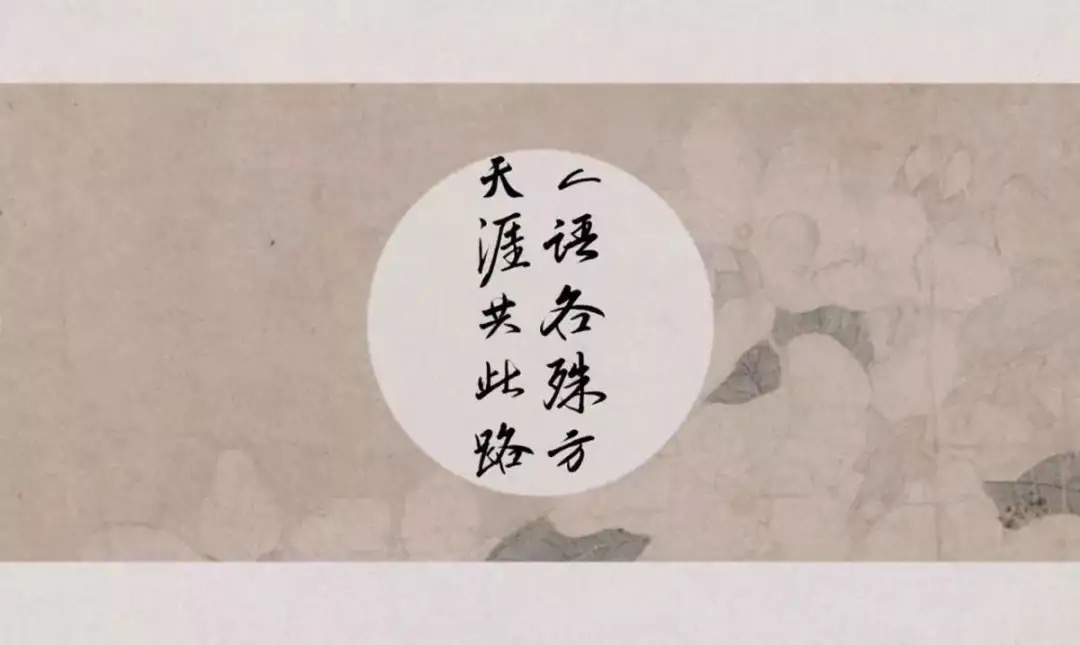 人语各殊方
天涯共此路